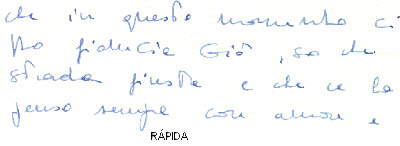 che in questo momento ci
Ho fiducia Giò, so che
strada giusta e che ce la
penso sempre con amore e
RÁPIDA